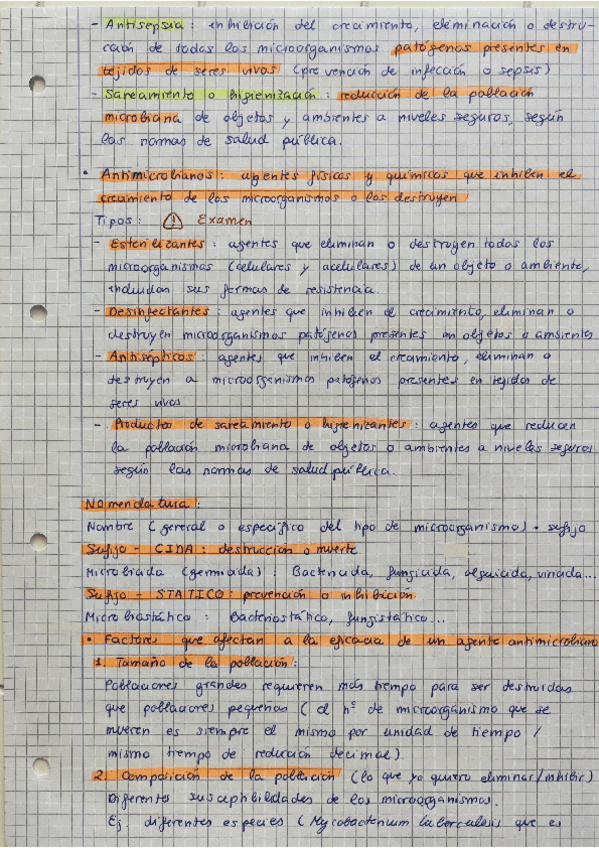 - Antisepsia : inhibición del crecimiento, eliminación o destru-
cción de todos los microorganismos patógenos presentes en
tejidos de seres vivos (prevención de infección o sepsis)
- Saneamiento o higienización : reducción de la población
microbiana de objetos y ambientes a niveles seguros, según
las normas de salud pública.
• Antimicrobianos : agentes físicos y químicos que inhiben el
crecimiento de los microorganismos o los destruyen
Tipos : ⚠ Examen
- Esterilizantes : agentes que eliminan o destruyen todos los
microorganismos (celulares y acelulares) de un objeto o ambiente,
incluidas sus formas de resistencia.
- Desinfectantes : agentes que inhiben el crecimiento, eliminan o
destruyen microorganismos patógenos presentes en objetos o ambientes
- Antisépticos : agentes que inhiben el crecimiento, eliminan o
destruyen a microorganismos patógenos presentes en tejidos de
seres vivos
- Productos de saneamiento o higienizantes : agentes que reducen
la población microbiana de objetos o ambientes a niveles seguros
según las normas de salud pública.
Nomenclatura :
Nombre (general o específico del tipo de microorganismo) + sufijo
Sufijo - CIDA : destrucción o muerte
Microbicida (germicida) : Bactericida, fungicida, alguicida, viricida...
Sufijo - STATICO : prevención o inhibición
Microbiostático : Bacteriostático, fungistático...
• Factores que afectan a la eficacia de un agente antimicrobiano
1. Tamaño de la población :
Poblaciones grandes requieren más tiempo para ser destruidas
que poblaciones pequeñas (el nº de microorganismo que se
mueren es siempre el mismo por unidad de tiempo /
mismo tiempo de reducción decimal).
2. Composición de la población (lo que yo quiero eliminar/inhibir)
Diferentes susceptibilidades de los microorganismos.
Ej. diferentes especies (Mycobacterium tuberculosis que es